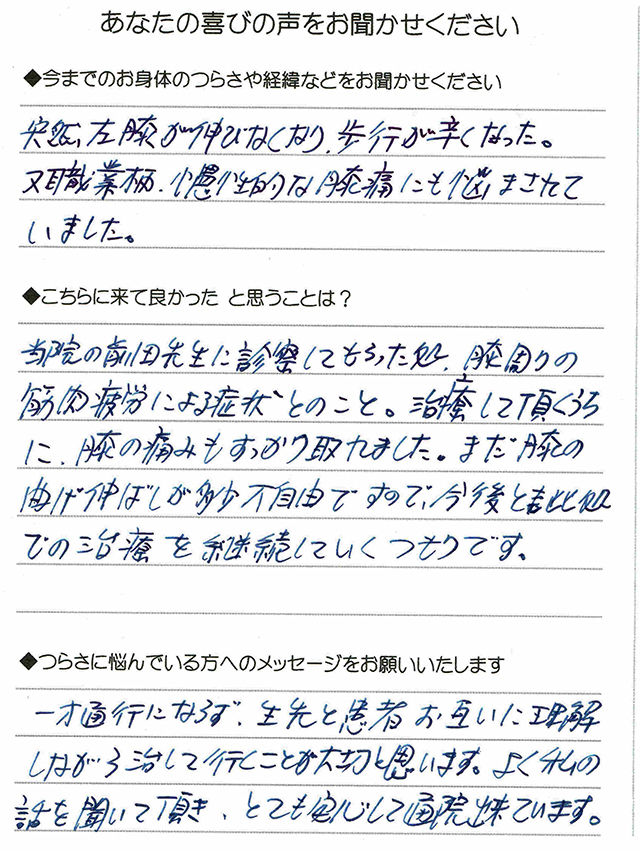 あなたの喜びの声をお聞かせください
◆今までのお身体のつらさや経緯などをお聞かせください
突然、左膝が伸びなくなり、歩行が辛くなった。
又職業柄、慢性的な膝痛にも悩まされて
いました。
◆こちらに来て良かった と思うことは？
当院の前田先生に診察してもらった処、膝周りの
筋肉疲労による症状とのこと。治療して頂くうち
に、膝の痛みもすっかり取れました。まだ膝の
曲げ伸ばしが多少不自由ですので、今後とも此処
での治療を継続していくつもりです。
◆つらさに悩んでいる方へのメッセージをお願いいたします
一方通行にならず、先生と患者お互いに理解
しながら治して行くことが大切と思います。よく私の
話を聞いて頂き、とても安心して通院出来ています。